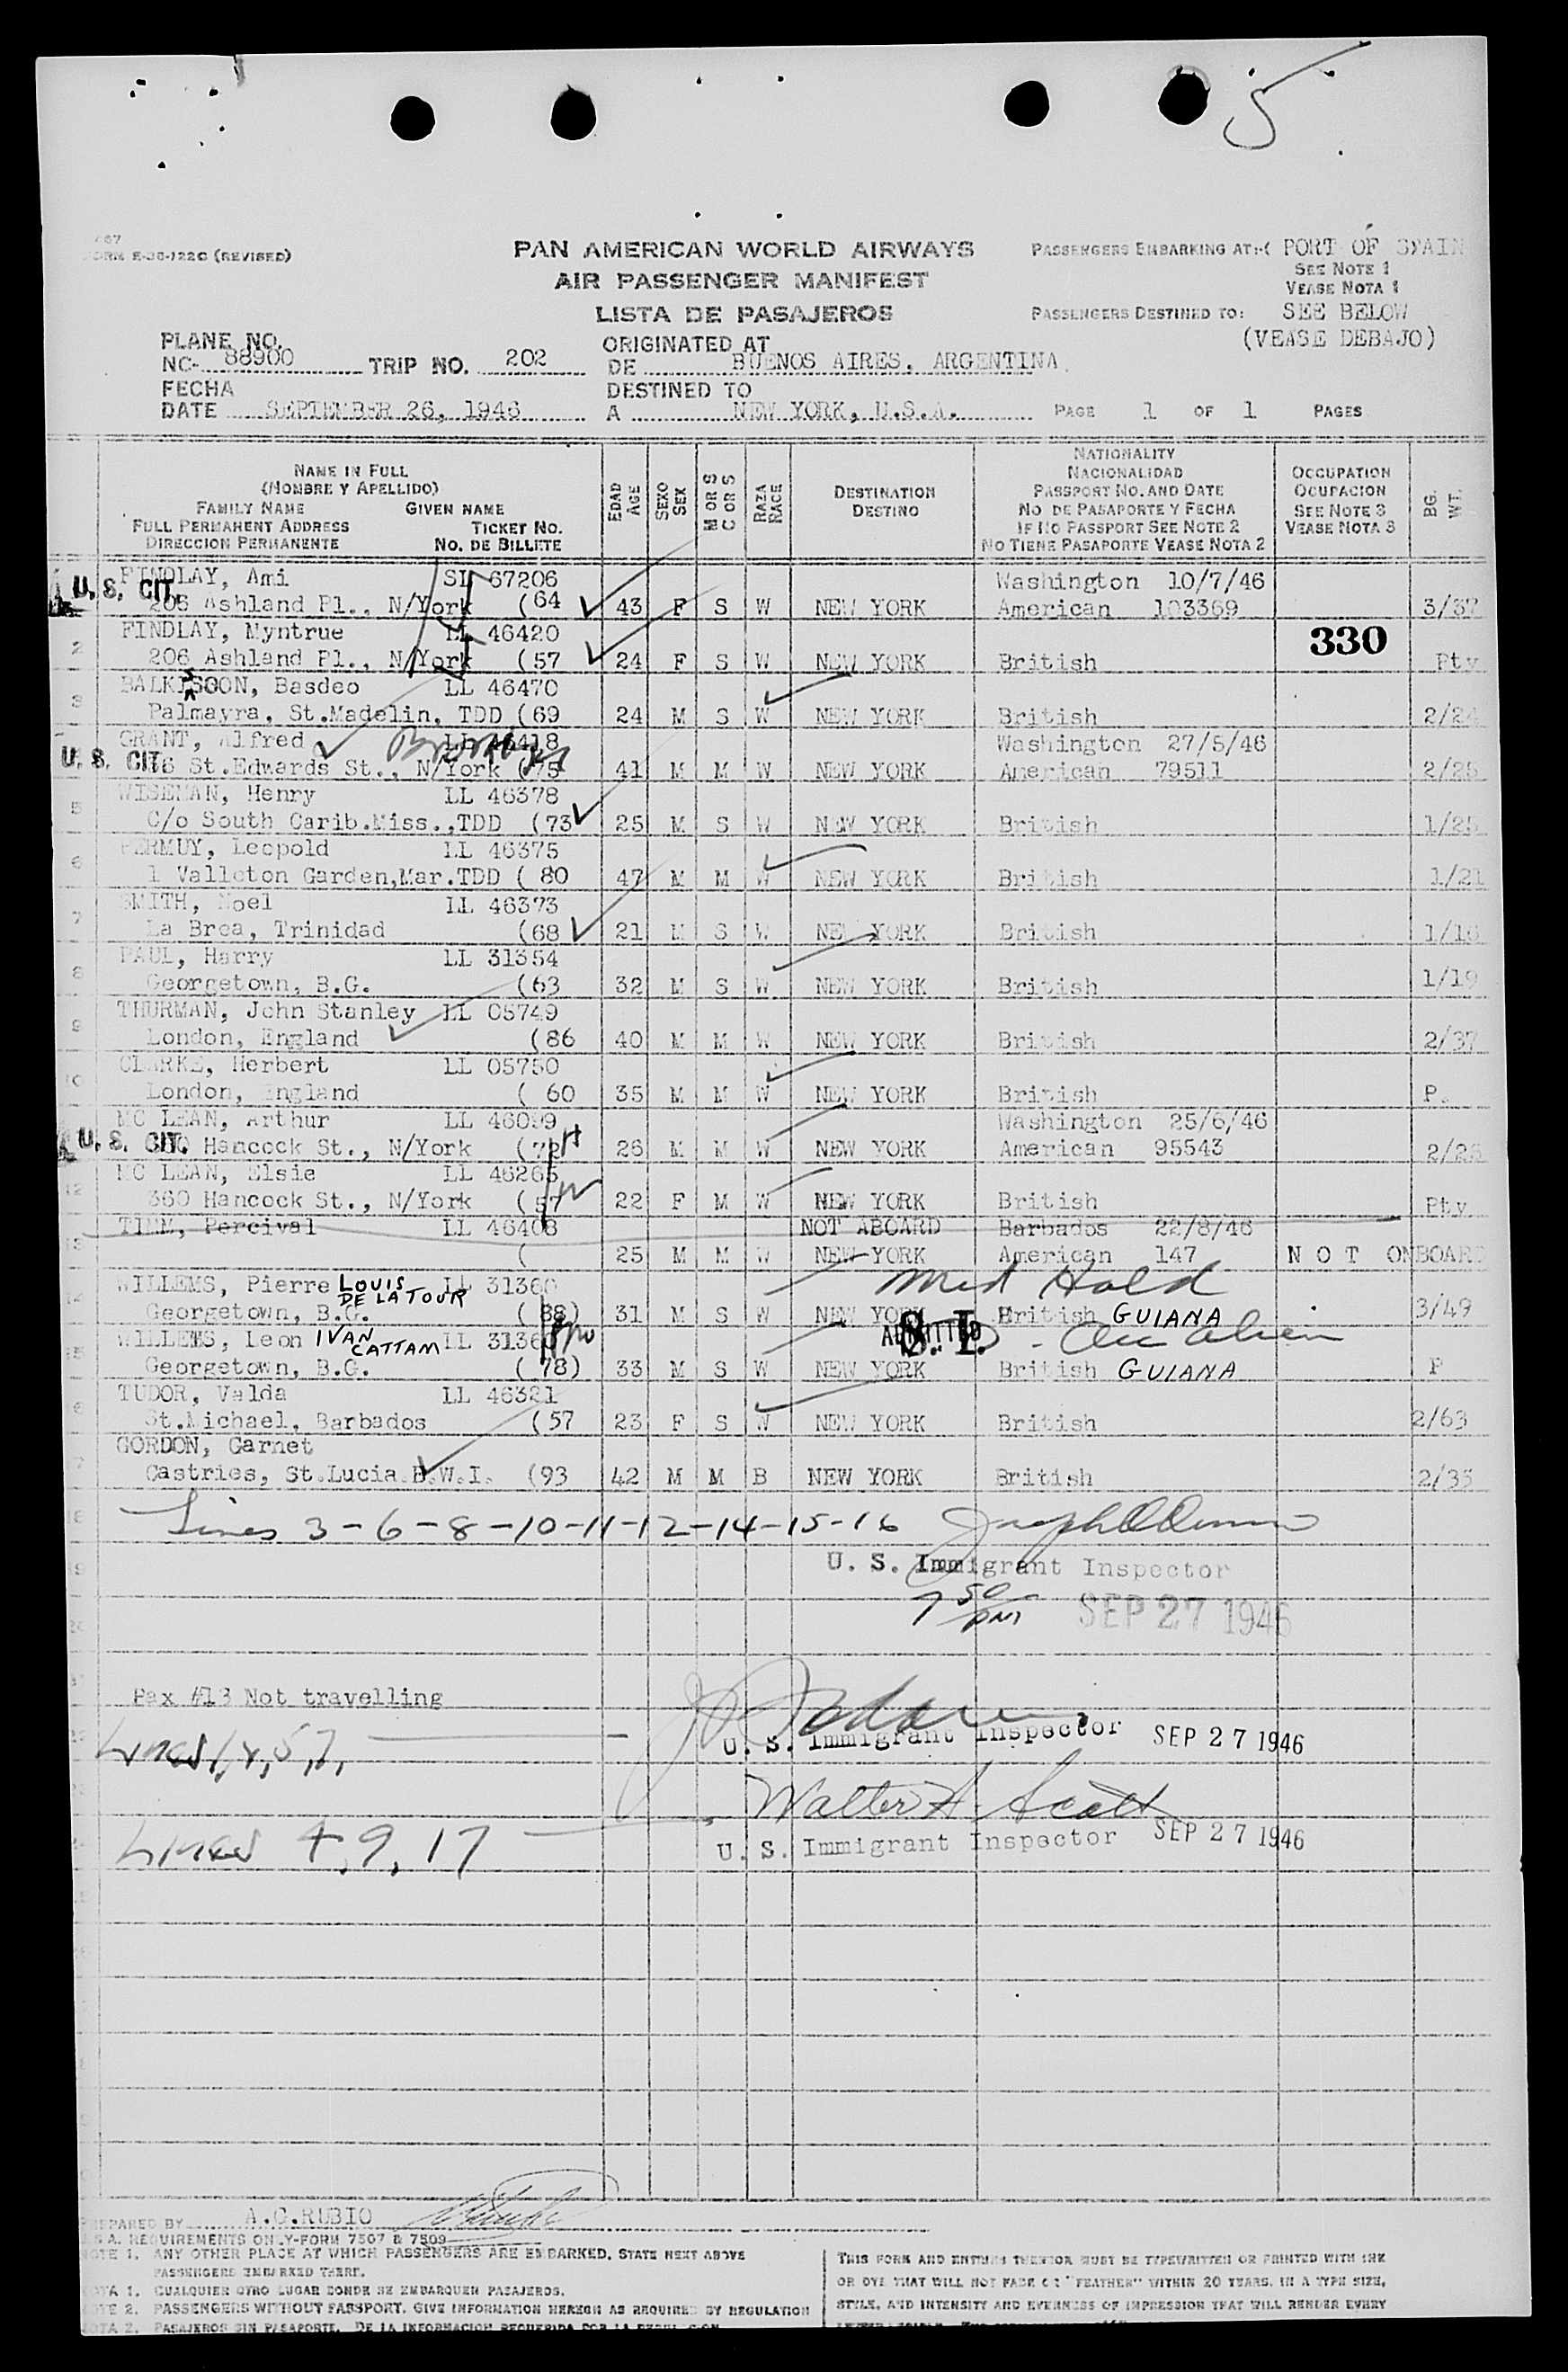 5
FORM E-36-122C (REVISED)
PAN AMERICAN WORLD AIRWAYS
AIR PASSENGER MANIFEST
LISTA DE PASAJEROS
PASSENGERS EMBARKING AT:-( PORT OF SPAIN
SEE NOTE 1
VEASE NOTA 1
PASSENGERS DESTINED TO: SEE BELOW
(VEASE DEBAJO)
PLANE NO.
NC- 88900 TRIP NO. 202
ORIGINATED AT
DE BUENOS AIRES, ARGENTINA
FECHA
DATE SEPTEMBER 26, 1946
DESTINED TO
A NEW YORK, U.S.A. PAGE 1 OF 1 PAGES
NAME IN FULL
(NOMBRE Y APELLIDO)
FAMILY NAME GIVEN NAME
FULL PERMANENT ADDRESS TICKET NO.
DIRECCION PERMANENTE NO. DE BILLETE
EDAD AGE
SEXO SEX
M OR S C OR S
RAZA RACE
DESTINATION
DESTINO
NATIONALITY
NACIONALIDAD
PASSPORT NO. AND DATE
NO DE PASAPORTE Y FECHA
IF NO PASSPORT SEE NOTE 2
NO TIENE PASAPORTE VEASE NOTA 2
OCCUPATION
OCUPACION
SEE NOTE 3
VEASE NOTA 3
BG. WT.
FINDLAY, Ami SL 67206 Washington 10/7/46
U. S. CIT. 206 Ashland Pl., N/York (64 43 F S W NEW YORK American 103369 3/37
2 FINDLAY, Myntrue LL 46420 330
206 Ashland Pl., N/York (57 24 F S W NEW YORK British Pty
3 BALKISSOON, Basdeo LL 46470
Palmayra, St.Madelin, TDD (69 24 M S W NEW YORK British 2/24
GRANT, Alfred Brooklyn LL 46418 Washington 27/5/46
U. S. CIT. St.Edwards St., N/York (75 41 M M W NEW YORK American 79511 2/25
5 WISEMAN, Henry LL 46378
C/o South Carib.Miss.,TDD (73 25 M S W NEW YORK British 1/25
6 FERMUY, Leopold LL 46375
1 Valleton Garden,Mar.TDD ( 80 47 M M W NEW YORK British 1/21
7 SMITH, Noel LL 46373
La Brea, Trinidad (68 21 M S W NEW YORK British 1/16
8 PAUL, Harry LL 31354
Georgetown, B.G. (63 32 M S W NEW YORK British 1/19
9 THURMAN, John Stanley LL 05749
London, England (86 40 M M W NEW YORK British 2/37
10 CLARKE, Herbert LL 05750
London, England ( 60 35 M M W NEW YORK British P.
MC LEAN, Arthur LL 46099 Washington 25/6/46
U. S. CIT. Hancock St., N/York (72 26 M M W NEW YORK American 95543 2/25
12 MC LEAN, Elsie LL 46265
360 Hancock St., N/York (57 22 F M W NEW YORK British Pty
13 TIMM, Percival LL 46408 NOT ABOARD Barbados 22/8/46
( 25 M M W NEW YORK American 147 N O T ONBOARD
14 WILLEMS, Pierre LOUIS DE LATOUR LL 31360 Med Hold
Georgetown, B.G. (88) 31 M S W NEW YORK British GUIANA 3/49
15 WILLEMS, Leon IVAN CATTAM LL 31360 ADMITTED S. I.
Georgetown, B.G. (78) 33 M S W NEW YORK British GUIANA P
6 TUDOR, Valda LL 46321
St.Michael, Barbados (57 23 F S W NEW YORK British 2/63
7 GORDON, Garnet
Castries, St.Lucia B.W.I. (93 42 M M B NEW YORK British 2/35
Lines 3-6-8-10-11-12-14-15-16
U. S. Immigrant Inspector
7 50 PM SEP 27 1946
Pax #13 Not travelling
U. S. Immigrant Inspector SEP 27 1946
Walter A. Scott
Lines 4, 9, 17 U. S. Immigrant Inspector SEP 27 1946
PREPARED BY A.C.RUBIO
REQUIREMENTS ONLY-FORM 7507 & 7509
NOTE 1. ANY OTHER PLACE AT WHICH PASSENGERS ARE EMBARKED, STATE NEXT ABOVE
PASSENGERS EMBARKED THERE.
NOTA 1. CUALQUIER OTRO LUGAR DONDE SE EMBARQUEN PASAJEROS.
NOTE 2. PASSENGERS WITHOUT PASSPORT, GIVE INFORMATION HEREON AS REQUIRED BY REGULATION
NOTA 2. PASAJEROS SIN PASAPORTE, DE LA INFORMACION REQUERIDA POR LA
THIS FORM AND ENTRIES THEREON MUST BE TYPEWRITTEN OR PRINTED WITH INK
OR DYE THAT WILL NOT FADE OR "FEATHER" WITHIN 20 YEARS, IN A TYPE SIZE,
STYLE, AND INTENSITY AND EVENNESS OF IMPRESSION THAT WILL RENDER EVERY